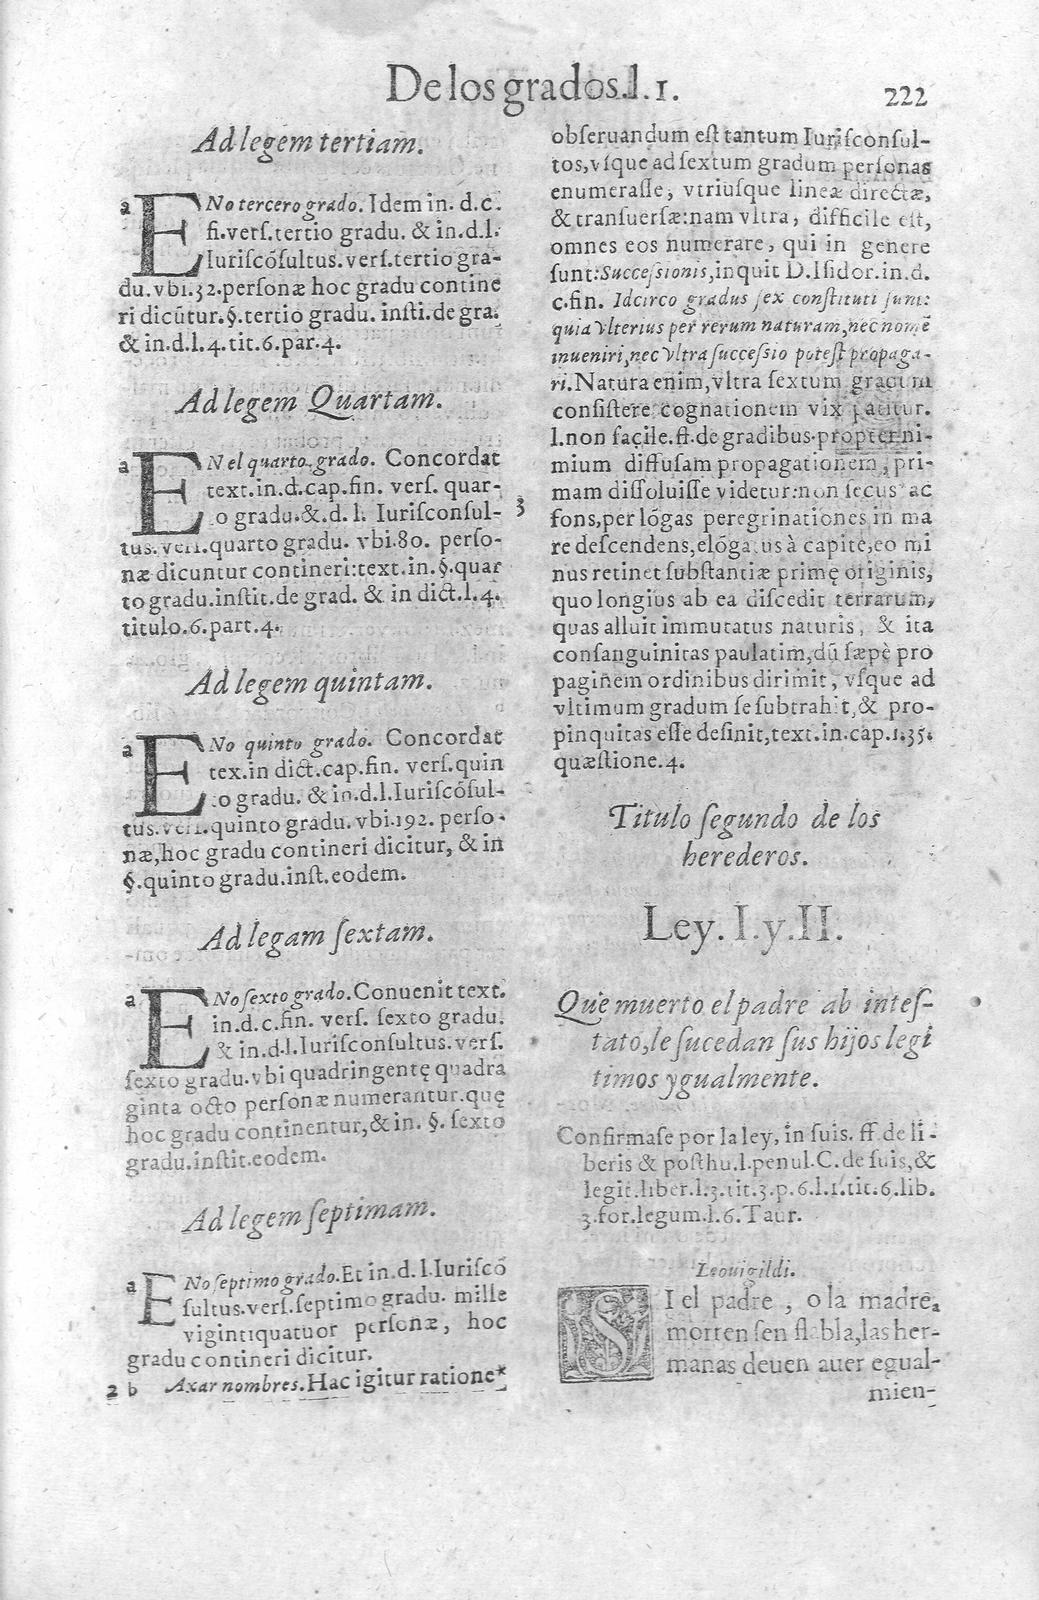 De los grados.l.1.
222
Ad legem tertiam.
a ENo tercero grado. Idem in. d.c.
fi.verſ.tertio gradu. & in.d.l.
Iuriſcõſultus.verſ.tertio gra-
du.vbi.32.perſonæ hoc gradu contine
ri dicũtur.§.tertio gradu. inſti.de gra.
& in.d.l.4.tit.6.par.4.
Ad legem Quartam.
a EN el quarto grado. Concordat
text.in.d.cap.fin. verſ. quar-
to gradu.&.d.l. Iuriſconſul-
tus.verſ.quarto gradu. vbi.80. perſo-
næ dicuntur contineri:text.in.§.quar
to gradu.inſtit.de grad. & in dict.l.4.
titulo.6.part.4.
Ad legem quintam.
a ENo quinto grado. Concordat
tex.in dict.cap.fin. verſ.quin
to gradu. & in.d.l.Iuriſcõſul-
tus.verſ.quinto gradu. vbi.192. perſo-
næ,hoc gradu contineri dicitur, & in
§.quinto gradu.inſt.eodem.
Ad legam ſextam.
a ENo ſexto grado.Conuenit text.
in.d.c.fin. verſ. ſexto gradu.
& in.d.l.Iuriſconſultus.verſ.
ſexto gradu.vbi quadringentę quadra
ginta octo perſonæ numerantur.quę
hoc gradu continentur,& in. §. ſexto
gradu.inſtit.eodem.
Ad legem ſeptimam.
a ENo ſeptimo grado.Et in.d.l.Iuriſcõ
ſultus.verſ.ſeptimo gradu. mille
vigintiquatuor perſonæ, hoc
gradu contineri dicitur.
2 b Axar nombres.Hac igitur ratione*
obſeruandum eſt tantum Iuriſconſul-
tos,vſque ad ſextum gradum perſonas
enumeraſſe, vtriuſque lineæ directæ,
& tranſuerſæ:nam vltra, difficile eſt,
omnes eos numerare, qui in genere
ſunt:Succeſsionis,inquit D.Iſidor.in.d.
c.fin. Idcirco gradus ſex conſtituti ſunt:
quia vlterius per rerum naturam,nec nomẽ
inueniri,nec vltra ſucceſsio poteſt propaga-
ri.Natura enim,vltra ſextum gradum
conſiſtere cognationem vix patitur.
l.non facile.ff.de gradibus.propter ni-
mium diffuſam propagationem, pri-
mam diſſoluiſſe videtur:non ſecus ac
3 fons,per lõgas peregrinationes in ma
re deſcendens,elõgatus à capite,eo mi
nus retinet ſubſtantiæ primę originis,
quo longius ab ea diſcedit terrarum,
quas alluit immutatus naturis, & ita
conſanguinitas paulatim,dũ ſæpè pro
paginẽm ordinibus dirimit, vſque ad
vltimum gradum ſe ſubtrahit,& pro-
pinquitas eſſe deſinit,text.in.cap.1.35.
quæſtione.4.
Titulo ſegundo de los
herederos.
Ley. I.y.II.
Que muerto el padre ab inteſ-
tato,le ſucedan ſus hijos legi
timos ygualmente.
Confirmaſe por la ley, in ſuis. ff.de li-
beris & poſthu.l.penul.C.de ſuis,&
legit.liber.l.3.tit.3.p.6.l.1.tit.6.lib.
3.for.legum.l.6.Taur.
Leouigildi.
SI el padre , o la madre,
morren ſen ſlabla,las her-
manas deuen auer egual-
mien-